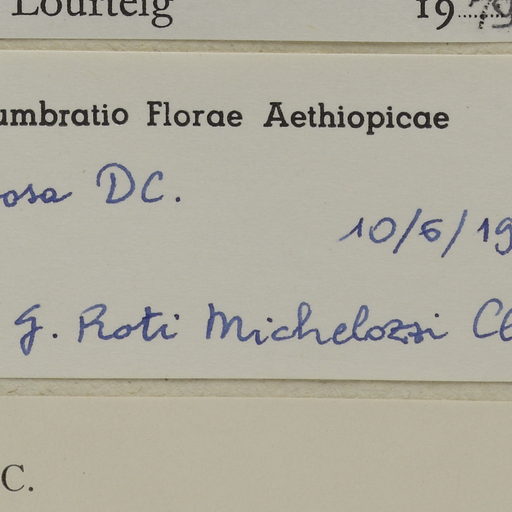 Lourteig 1979
umbratio Florae Aethiopicae
osa DC.
10/6/19
G. Roti Michelozzi
C.